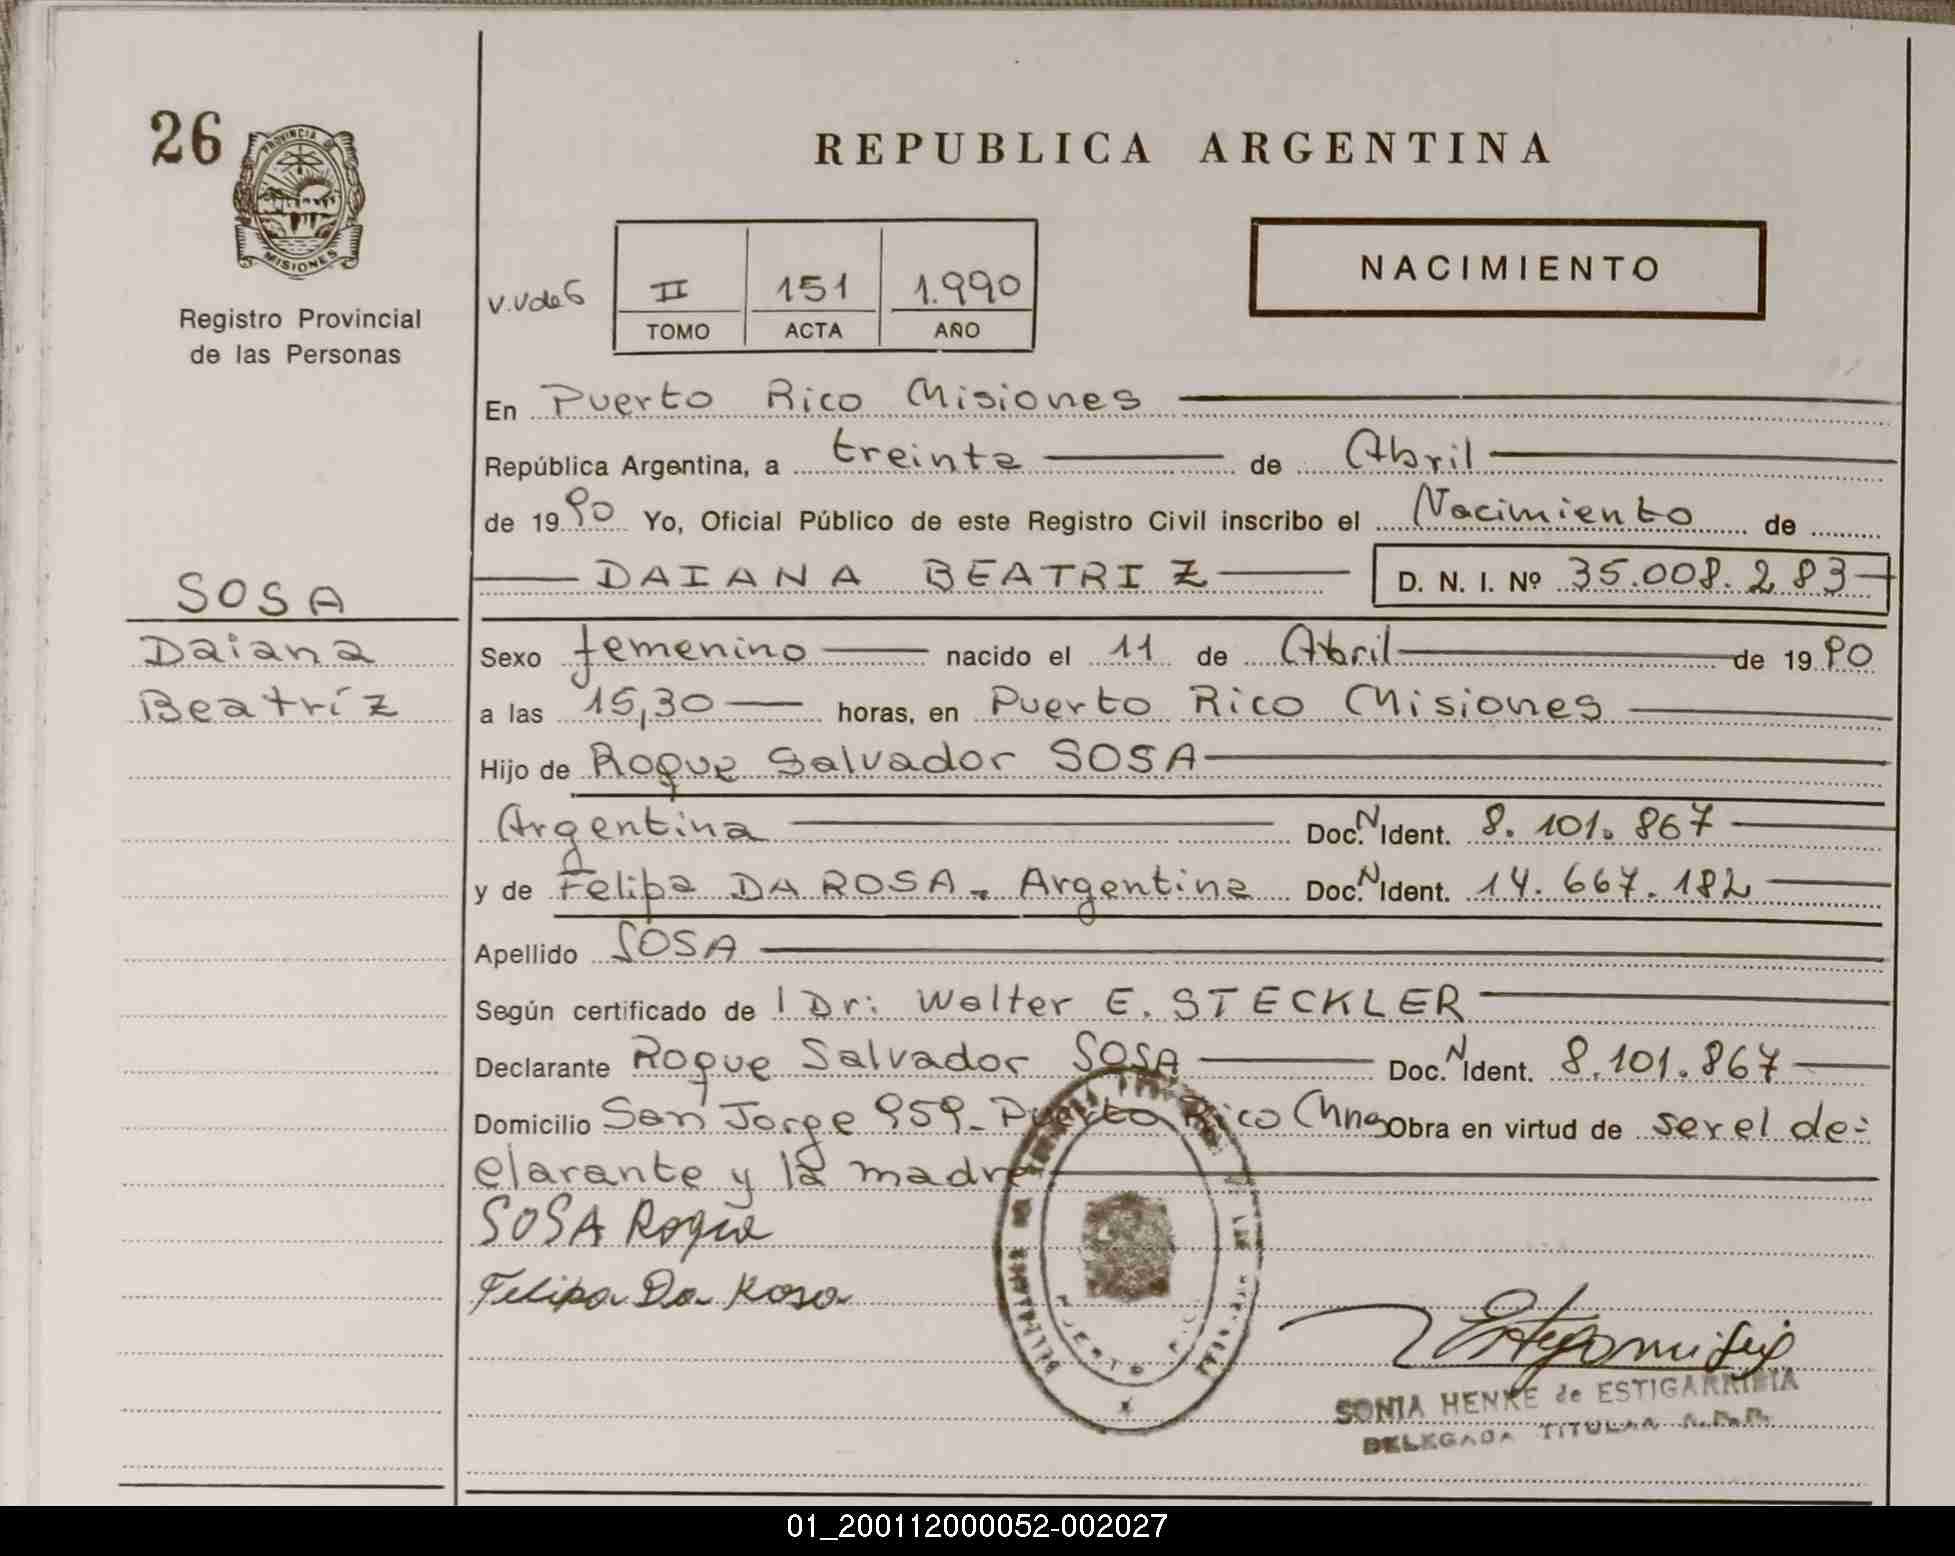 26
PROVINCIA DE
MISIONES
Registro Provincial
de las Personas
REPUBLICA ARGENTINA
NACIMIENTO
II 151 1.990
TOMO ACTA AÑO
En Puerto Rico Misiones
República Argentina, a treinta de Abril
de 1990 Yo, Oficial Público de este Registro Civil inscribo el Nacimiento de
DAIANA BEATRIZ D. N. I. Nº 35.008.283
SOSA
Daiana
Beatríz
Sexo femenino nacido el 11 de Abril de 1990
a las 15,30 horas, en Puerto Rico Misiones
Hijo de Roque Salvador SOSA
Argentina Doc. N Ident. 8.101.867
y de Felipa DA ROSA. Argentina Doc. N Ident. 14.667.182
Apellido SOSA
Según certificado de l Dr: Walter E. STECKLER
Declarante Roque Salvador SOSA Doc. N Ident. 8.101.867
Domicilio San Jorge 959- Puerto Rico Mnes Obra en virtud de ser el de=
clarante y la madre
SOSA Roque
Felipa Da Rosa
PUERTO RICO
SONIA HENKE de ESTIGARRIBIA
DELEGADA TITULAR R.P.P.
01_200112000052-002027